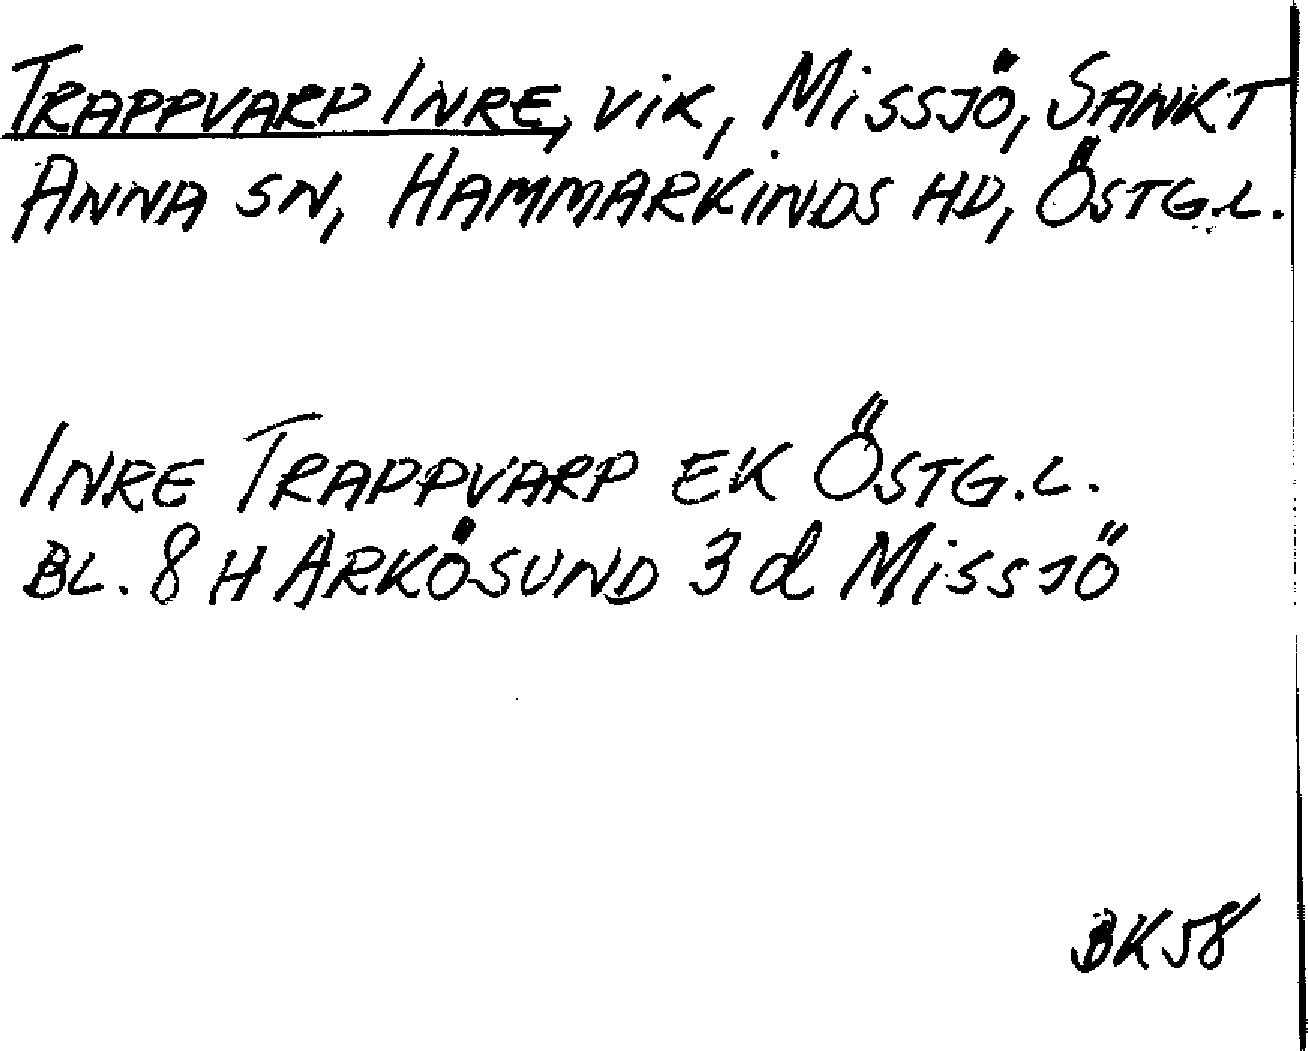 TRAPPVARP INRE, VIK, MISSJÖ, SANKT
ANNA SN, HAMMARKINDS HD, ÖSTG.L.
INRE TRAPPVARP EK ÖSTG.L.
BL. 8 H ARKÖSUND 3 d MISSJÖ
BK58